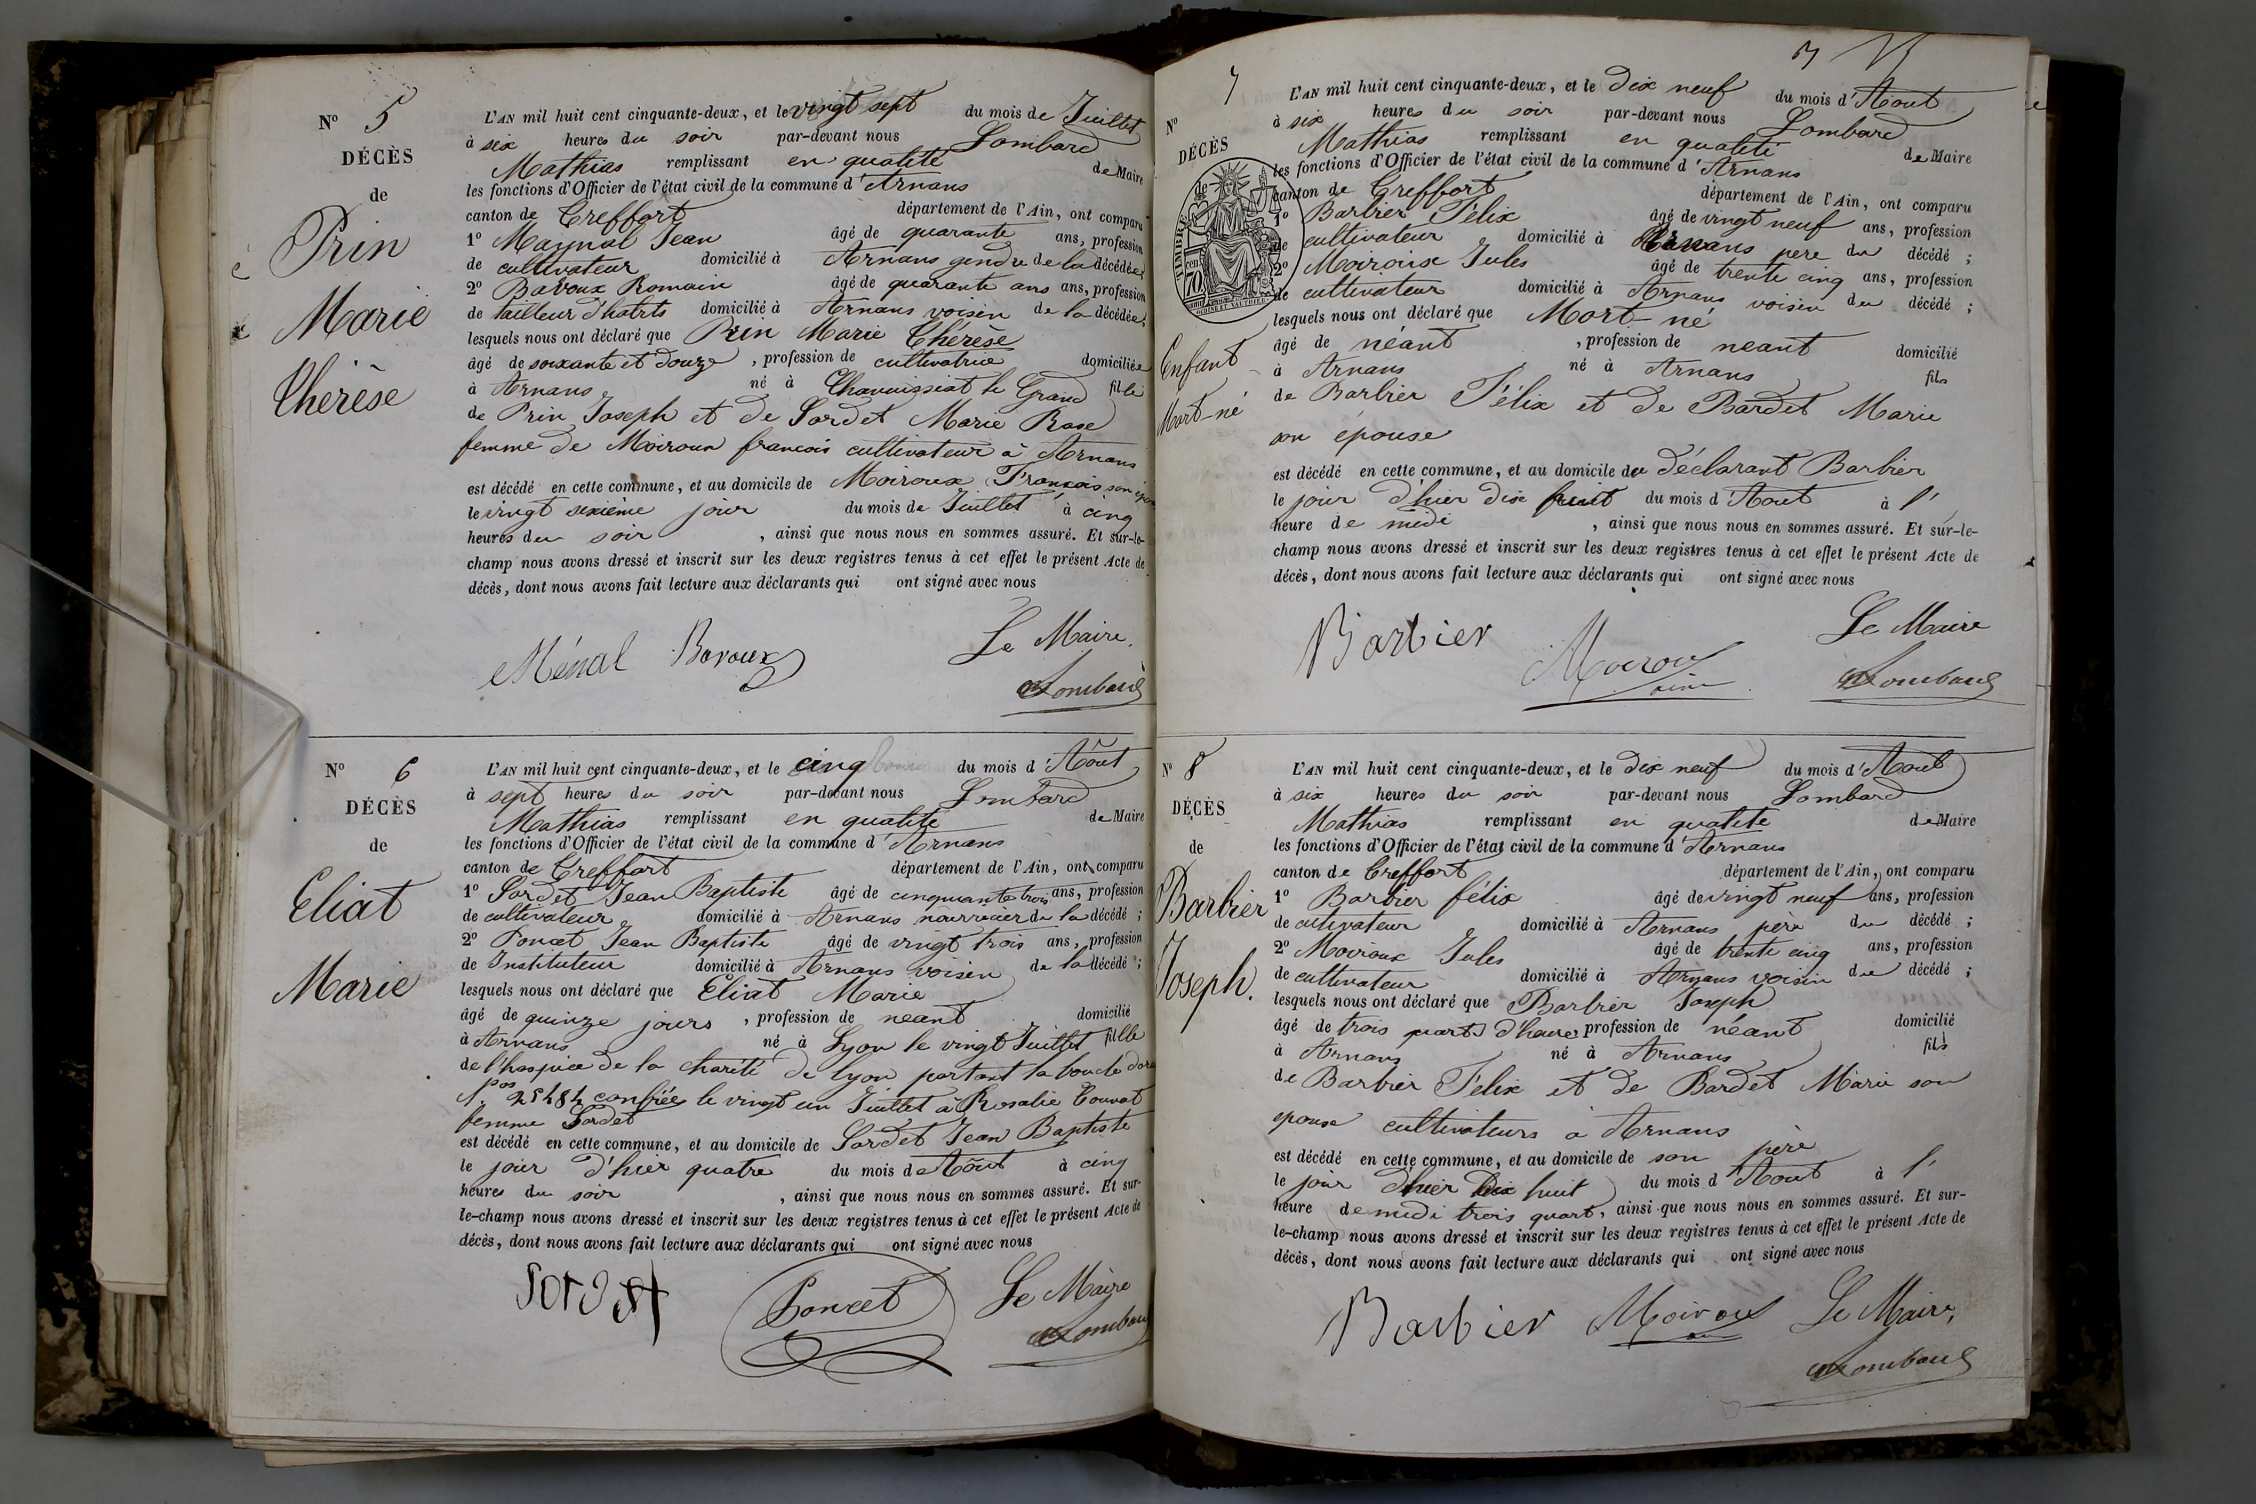 Nº 5
DÉCÈS
de
Prin
Marie
Thérèse
L'AN mil huit cent cinquante-deux, et le vingt sept du mois de Juillet
à six heures du soir par-devant nous Lombard
Mathias remplissant en qualité de Maire
les fonctions d'Officier de l'état civil de la commune d'Arnans
canton de Treffort département de l'Ain, ont comparu
1º Maynal Jean âgé de quarante ans, profession
de cultivateur domicilié à Arnans gendre de la décédée
2º Bavoux Romain âgé de quarante ans ans, profession
de tailleur d'habits domicilié à Arnans voisin de la décédée;
lesquels nous ont déclaré que Prin Marie Thérèse
âgé de soixante et douze, profession de cultivatrice domiciliée
à Arnans né à Chavuissiat le Grand fille
de Prin Joseph et de Sordet Marie Rose
femme de Moiroux francois cultivateur à Arnans
est décédé en cette commune, et au domicile de Moiroux François son époux
le vingt sixième jour du mois de Juillet à cinq
heures du soir, ainsi que nous nous en sommes assuré. Et sur-le-
champ nous avons dressé et inscrit sur les deux registres tenus à cet effet le présent Acte de
décès, dont nous avons fait lecture aux déclarants qui ont signé avec nous
Ménal Bavoux Le Maire.
Lombard
Nº 6
DÉCÈS
de
Eliat
Marie
L'AN mil huit cent cinquante-deux, et le cinq du mois d'Août
à sept heures du soir par-devant nous Lombard
Mathias remplissant en qualité de Maire
les fonctions d'Officier de l'état civil de la commune d'Arnans
canton de Treffort département de l'Ain, ont comparu
1º Sordet Jean Baptiste âgé de cinquante trois ans, profession
de cultivateur domicilié à Arnans nourricier de la décédé;
2º Poncet Jean Baptiste âgé de vingt trois ans, profession
de Instituteur domicilié à Arnans voisin de la décédé;
lesquels nous ont déclaré que Eliat Marie
âgé de quinze jours, profession de neant domicilié
à Arnans né à Lyon le vingt Juillet fille
de l'hospice de la charité de lyon portant la boucle
Nos confiée le vingt un Juillet à Rosalie
femme Sordet
est décédé en cette commune, et au domicile de Sordet Jean Baptiste
le jour d'hier quatre du mois d'Août à cinq
heures du soir, ainsi que nous nous en sommes assuré. Et sur-
le-champ nous avons dressé et inscrit sur les deux registres tenus à cet effet le présent Acte de
décès, dont nous avons fait lecture aux déclarants qui ont signé avec nous
Sordet Poncet Le Maire
Lombard
Nº 7
DÉCÈS
de
Enfant
Mort-né
TIMBRE
70
L'AN mil huit cent cinquante-deux, et le dix neuf du mois d'Aout
à six heures du soir par-devant nous Lombard
Mathias remplissant en qualité de Maire
les fonctions d'Officier de l'état civil de la commune d'Arnans
canton de Treffort département de l'Ain, ont comparu
1º Barbier Félix âgé de vingt neuf ans, profession
de cultivateur domicilié à Arnans pere du décédé;
2º Moiroux Jules âgé de trente cinq ans, profession
de cultivateur domicilié à Arnans voisin du décédé;
lesquels nous ont déclaré que Mort-né
âgé de néant, profession de neant domicilié
à Arnans né à Arnans fils
de Barbier Félix et de Bardet Marie
son épouse
est décédé en cette commune, et au domicile du déclarant Barbier
le jour d'hier dix huit du mois d'Aout à l'
heure de midi, ainsi que nous nous en sommes assuré. Et sur-le-
champ nous avons dressé et inscrit sur les deux registres tenus à cet effet le présent Acte de
décès, dont nous avons fait lecture aux déclarants qui ont signé avec nous
Barbier Moiroux Le Maire
Lombard
Nº 8
DÉCÈS
de
Barbier
Joseph.
L'AN mil huit cent cinquante-deux, et le dix neuf du mois d'Aout
à six heures du soir par-devant nous Lombard
Mathias remplissant en qualité de Maire
les fonctions d'Officier de l'état civil de la commune d'Arnans
canton de Treffort département de l'Ain, ont comparu
1º Barbier félix âgé de vingt neuf ans, profession
de cultivateur domicilié à Arnans père du décédé;
2º Moiroux Jules âgé de trente cinq ans, profession
de cultivateur domicilié à Arnans voisin du décédé;
lesquels nous ont déclaré que Barbier Joseph
âgé de trois quarts d'heure profession de néant domicilié
à Arnans né à Arnans fils
de Barbier Félix et de Bardet Marie son
epouse cultivateurs à Arnans
est décédé en cette commune, et au domicile de son père
le jour d'hier dix huit du mois d'Aout à l'
heure de midi trois quart, ainsi que nous nous en sommes assuré. Et sur-
le-champ nous avons dressé et inscrit sur les deux registres tenus à cet effet le présent Acte de
décès, dont nous avons fait lecture aux déclarants qui ont signé avec nous
Barbier Moiroux Le Maire,
Lombard